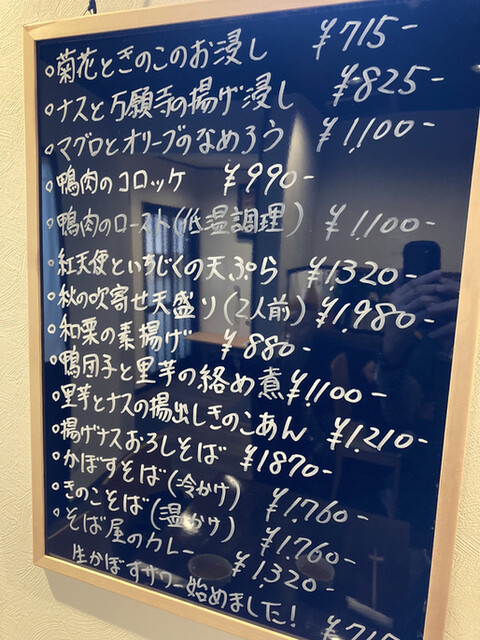 ○菊花ときのこのお浸し ¥715-
○ナスと万願寺の揚げ浸し ¥825-
○マグロとオリーブのなめろう ¥1,100-
○鴨肉のコロッケ ¥990-
○鴨肉のロースト(低温調理) ¥1,100-
○紅天使といちじくの天ぷら ¥1,320-
○秋の吹寄せ天盛り(2人前) ¥1,980-
○和栗の素揚げ ¥880-
○鴨団子と里芋の絡め煮 ¥1,100-
○里芋とナスの揚出しきのこあん ¥1,210-
○揚げナスおろしそば ¥1870-
○かぼすそば(冷かけ) ¥1,760-
○きのこそば(温かけ) ¥1,760-
○そば屋のカレー ¥1,320-
生かぼすサワー始めました! ¥715